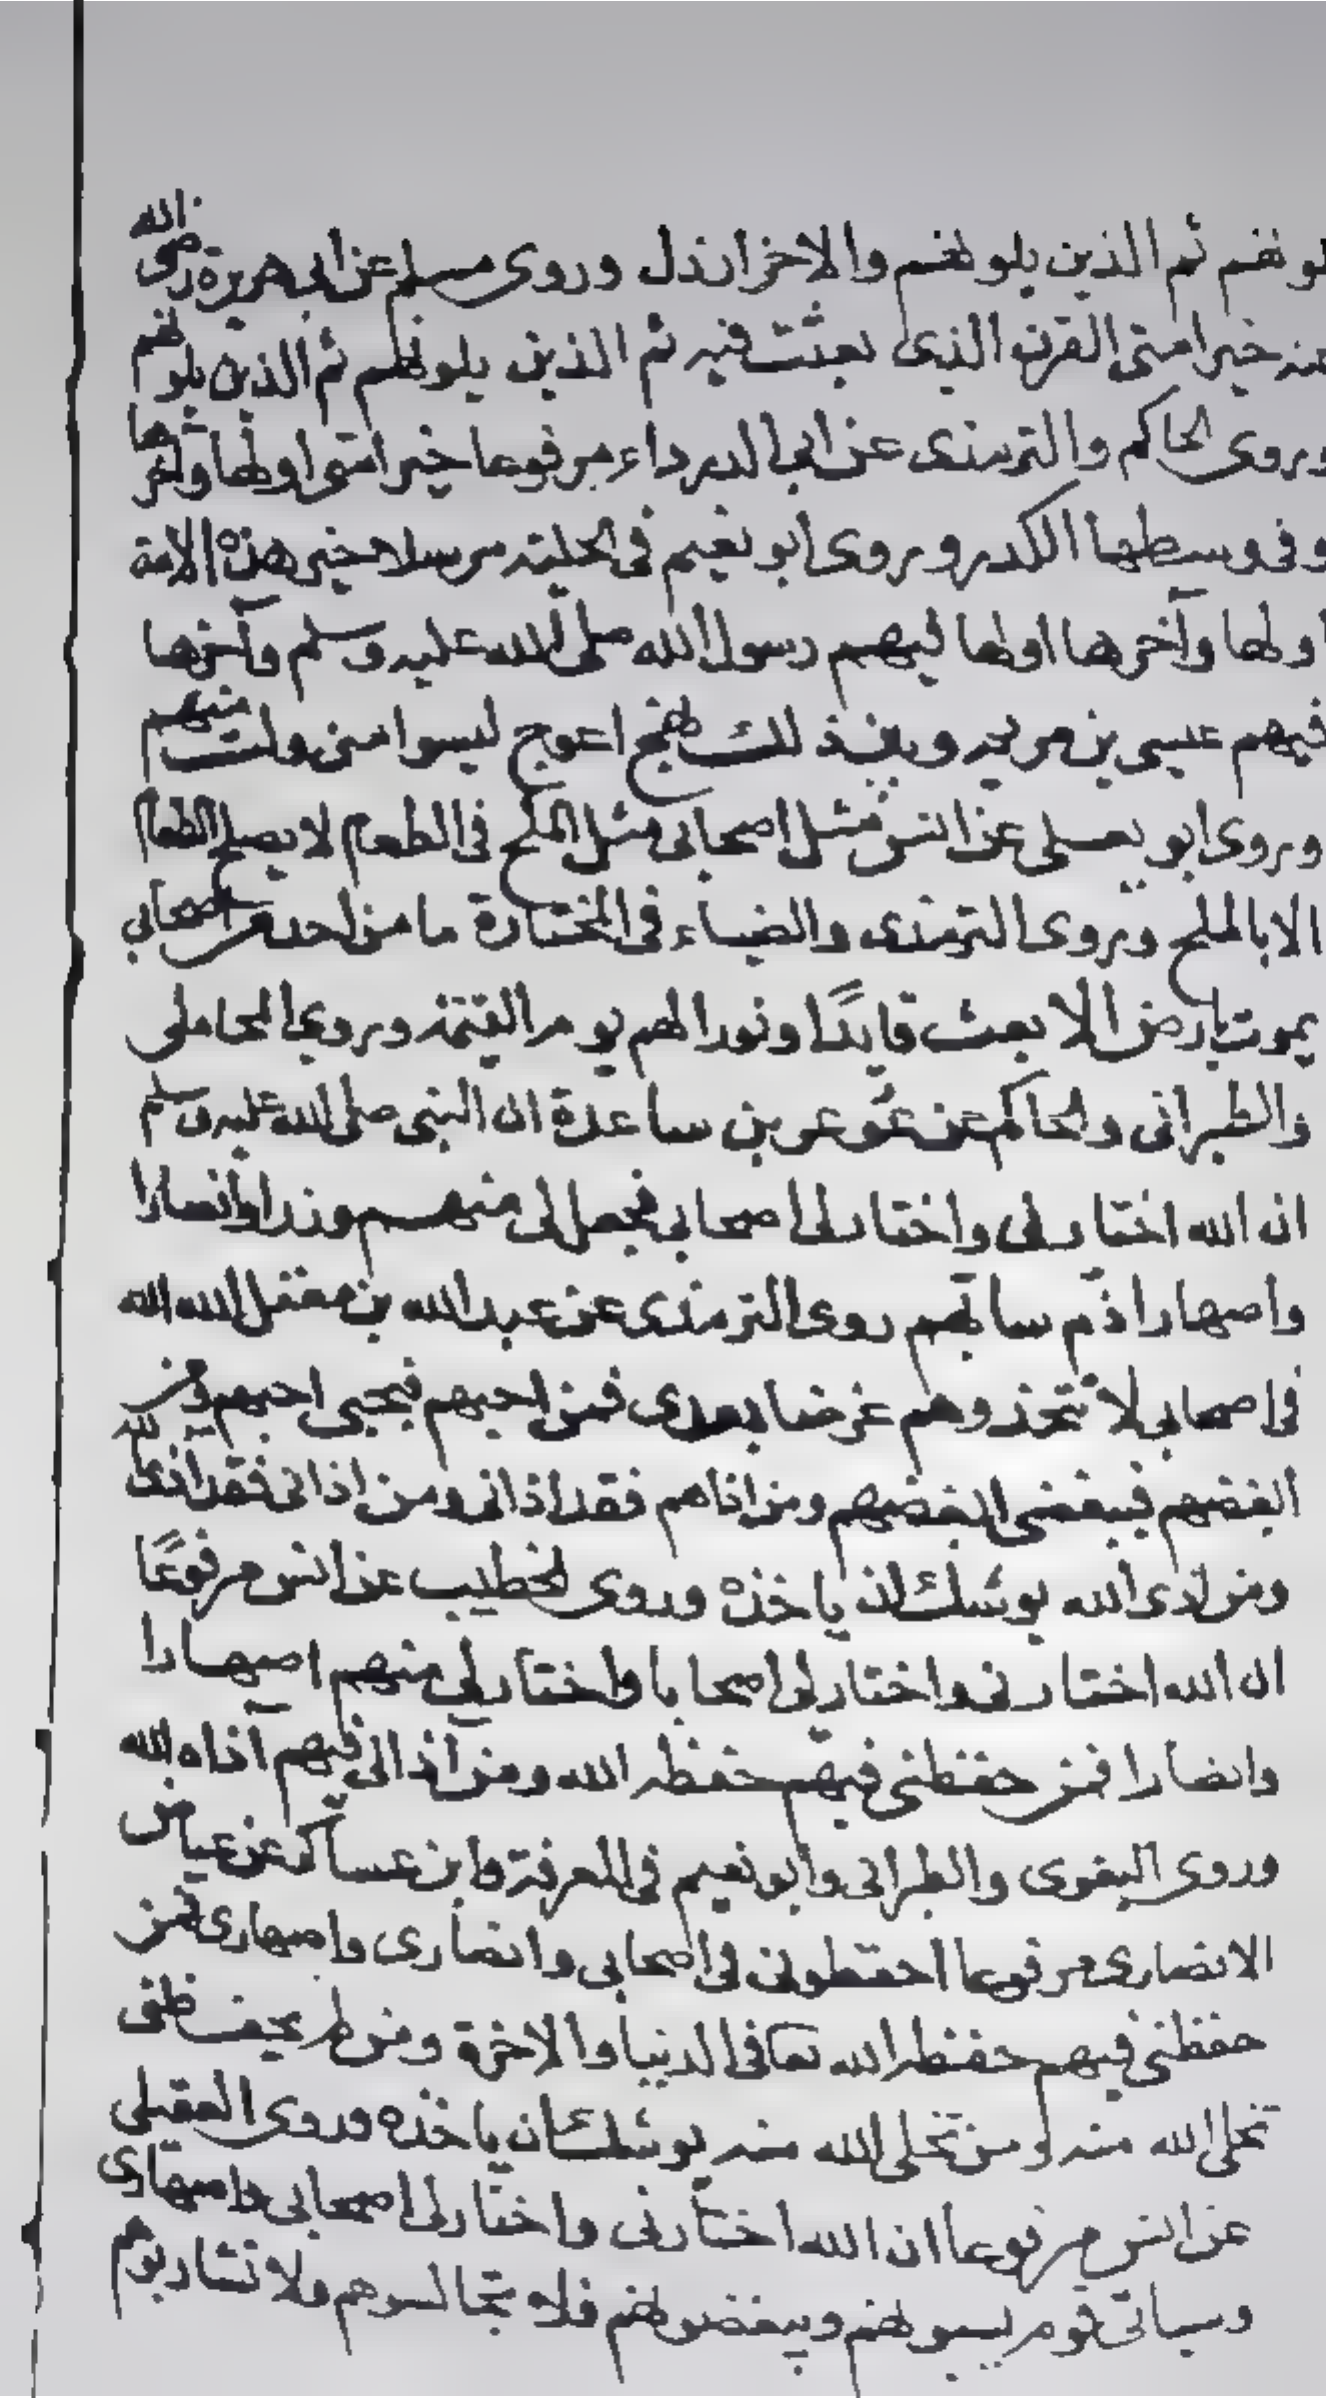 لونهم ثم الذين يلونهم والاخر ارذل وروى مسلم عن ابى هريرة رضى الله
عنه خير امتى القرن الذى بعثت فيه ثم الذين يلونهم ثم الذين يلونهم
وروى الحاكم والترمذى عن ابى الدرداء مرفوعا خير امتى اولها وآخرها
وفى وسطها الكدر وروى ابو نعيم فى الحلية مرسلا خير هذه الامة
اولها وآخرها اولها فيهم رسول الله صلى الله عليه وسلم وآخرها
فيهم عيسى بن مريم وبين ذلك نهج اعوج ليسوا منى ولست منهم
وروى ابو يعلى عن انس مثل اصحابى مثل الملح فى الطعام لا يصلح الطعام
الا بالملح وروى الترمذى والضياء فى المختارة ما من احد من اصحابى
يموت بارض الا بعث قايدًا ونورا لهم يوم القيمة وروى المحاملى
والطبرانى والحاكم عن عويمر بن ساعدة ان النبى صلى الله عليه وسلم
ان الله اختارنى واختار لى اصحابى فجعل لى منهم وزرا وانصارا
واصهارا روى الترمذى عن عبد الله بن مغفل الله الله
فى اصحابى لا تتخذوهم غرضا بعدى فمن احبهم فبحبى احبهم ومن
ابغضهم فببغضى ابغضهم ومن اذاهم فقد اذانى ومن اذانى فقد اذى الله
ومن اذى الله يوشك ان ياخذه وروى الخطيب عن انس مرفوعًا
ان الله اختارنى واختار لى اصحابا واختار لى منهم اصهارا
وانصارا فمن حفظنى فيهم حفظه الله ومن آذانى فيهم آذاه الله
وروى البغوى والطبرانى وابو نعيم فى المعرفة وابن عساكر عن عياض
الانصارى مرفوعا احفظونى فى اصحابى وانصارى واصهارى فمن
حفظنى فيهم حفظه الله تعا فى الدنيا والاخرة ومن لم يحفظنى
تخلى الله منه ومن تخلى الله منه يوشك ان ياخذه وروى العقيلى
عن انس مرفوعا ان الله اختارنى واختار لى اصحابى واصهارى
وسياتى قوم يسبونهم ويبغضونهم فلا تجالسوهم ولا تشاربوهم